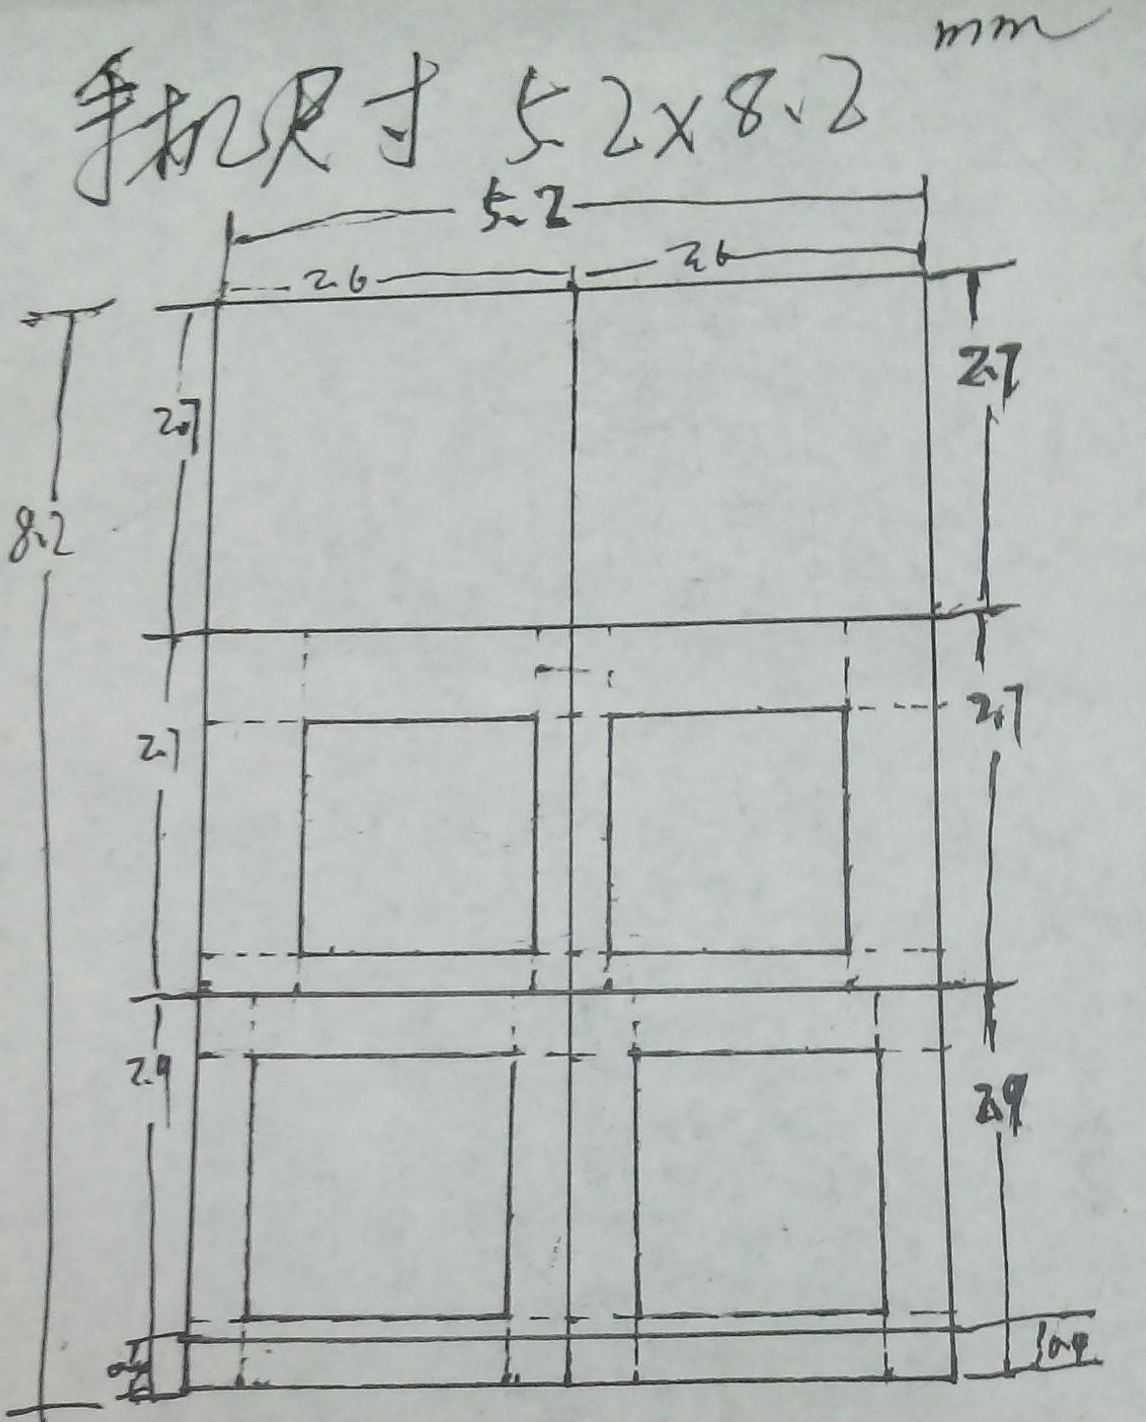 mm
手机尺寸 5.2x8.2
5.2
2.6 2.6
2.7 2.7
8.2
2.7 2.7
2.9 2.9
0.4